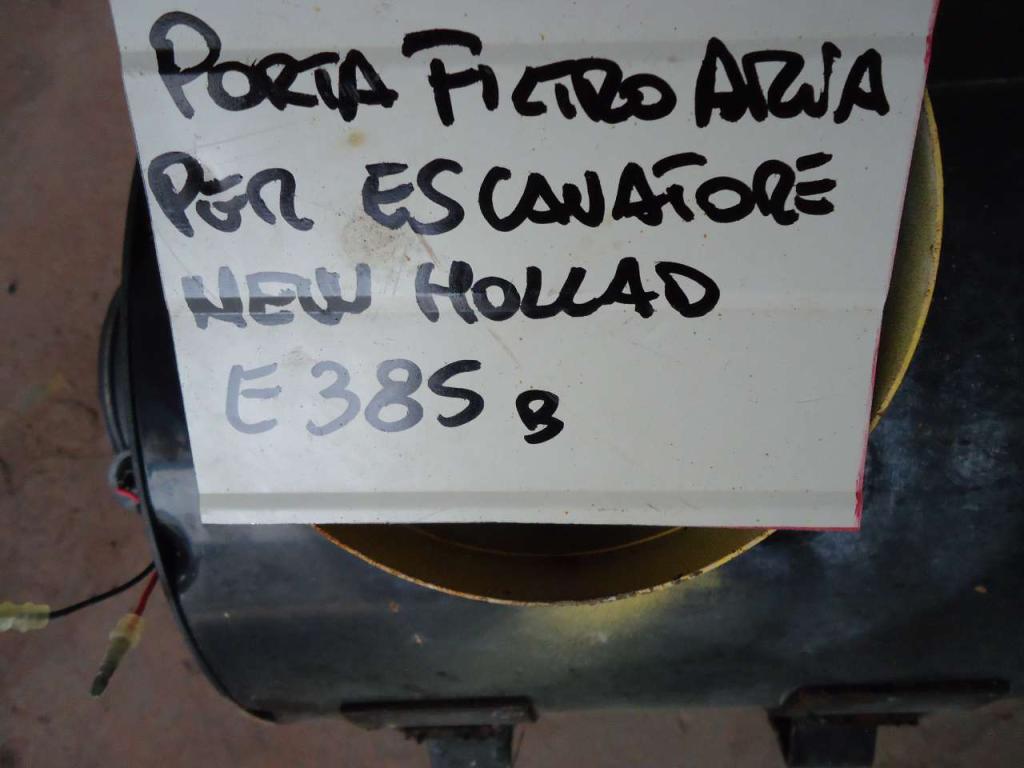 PORTA FILTRO ARIA
PER ESCAVATORE
NEW HOLLAD
E385 B